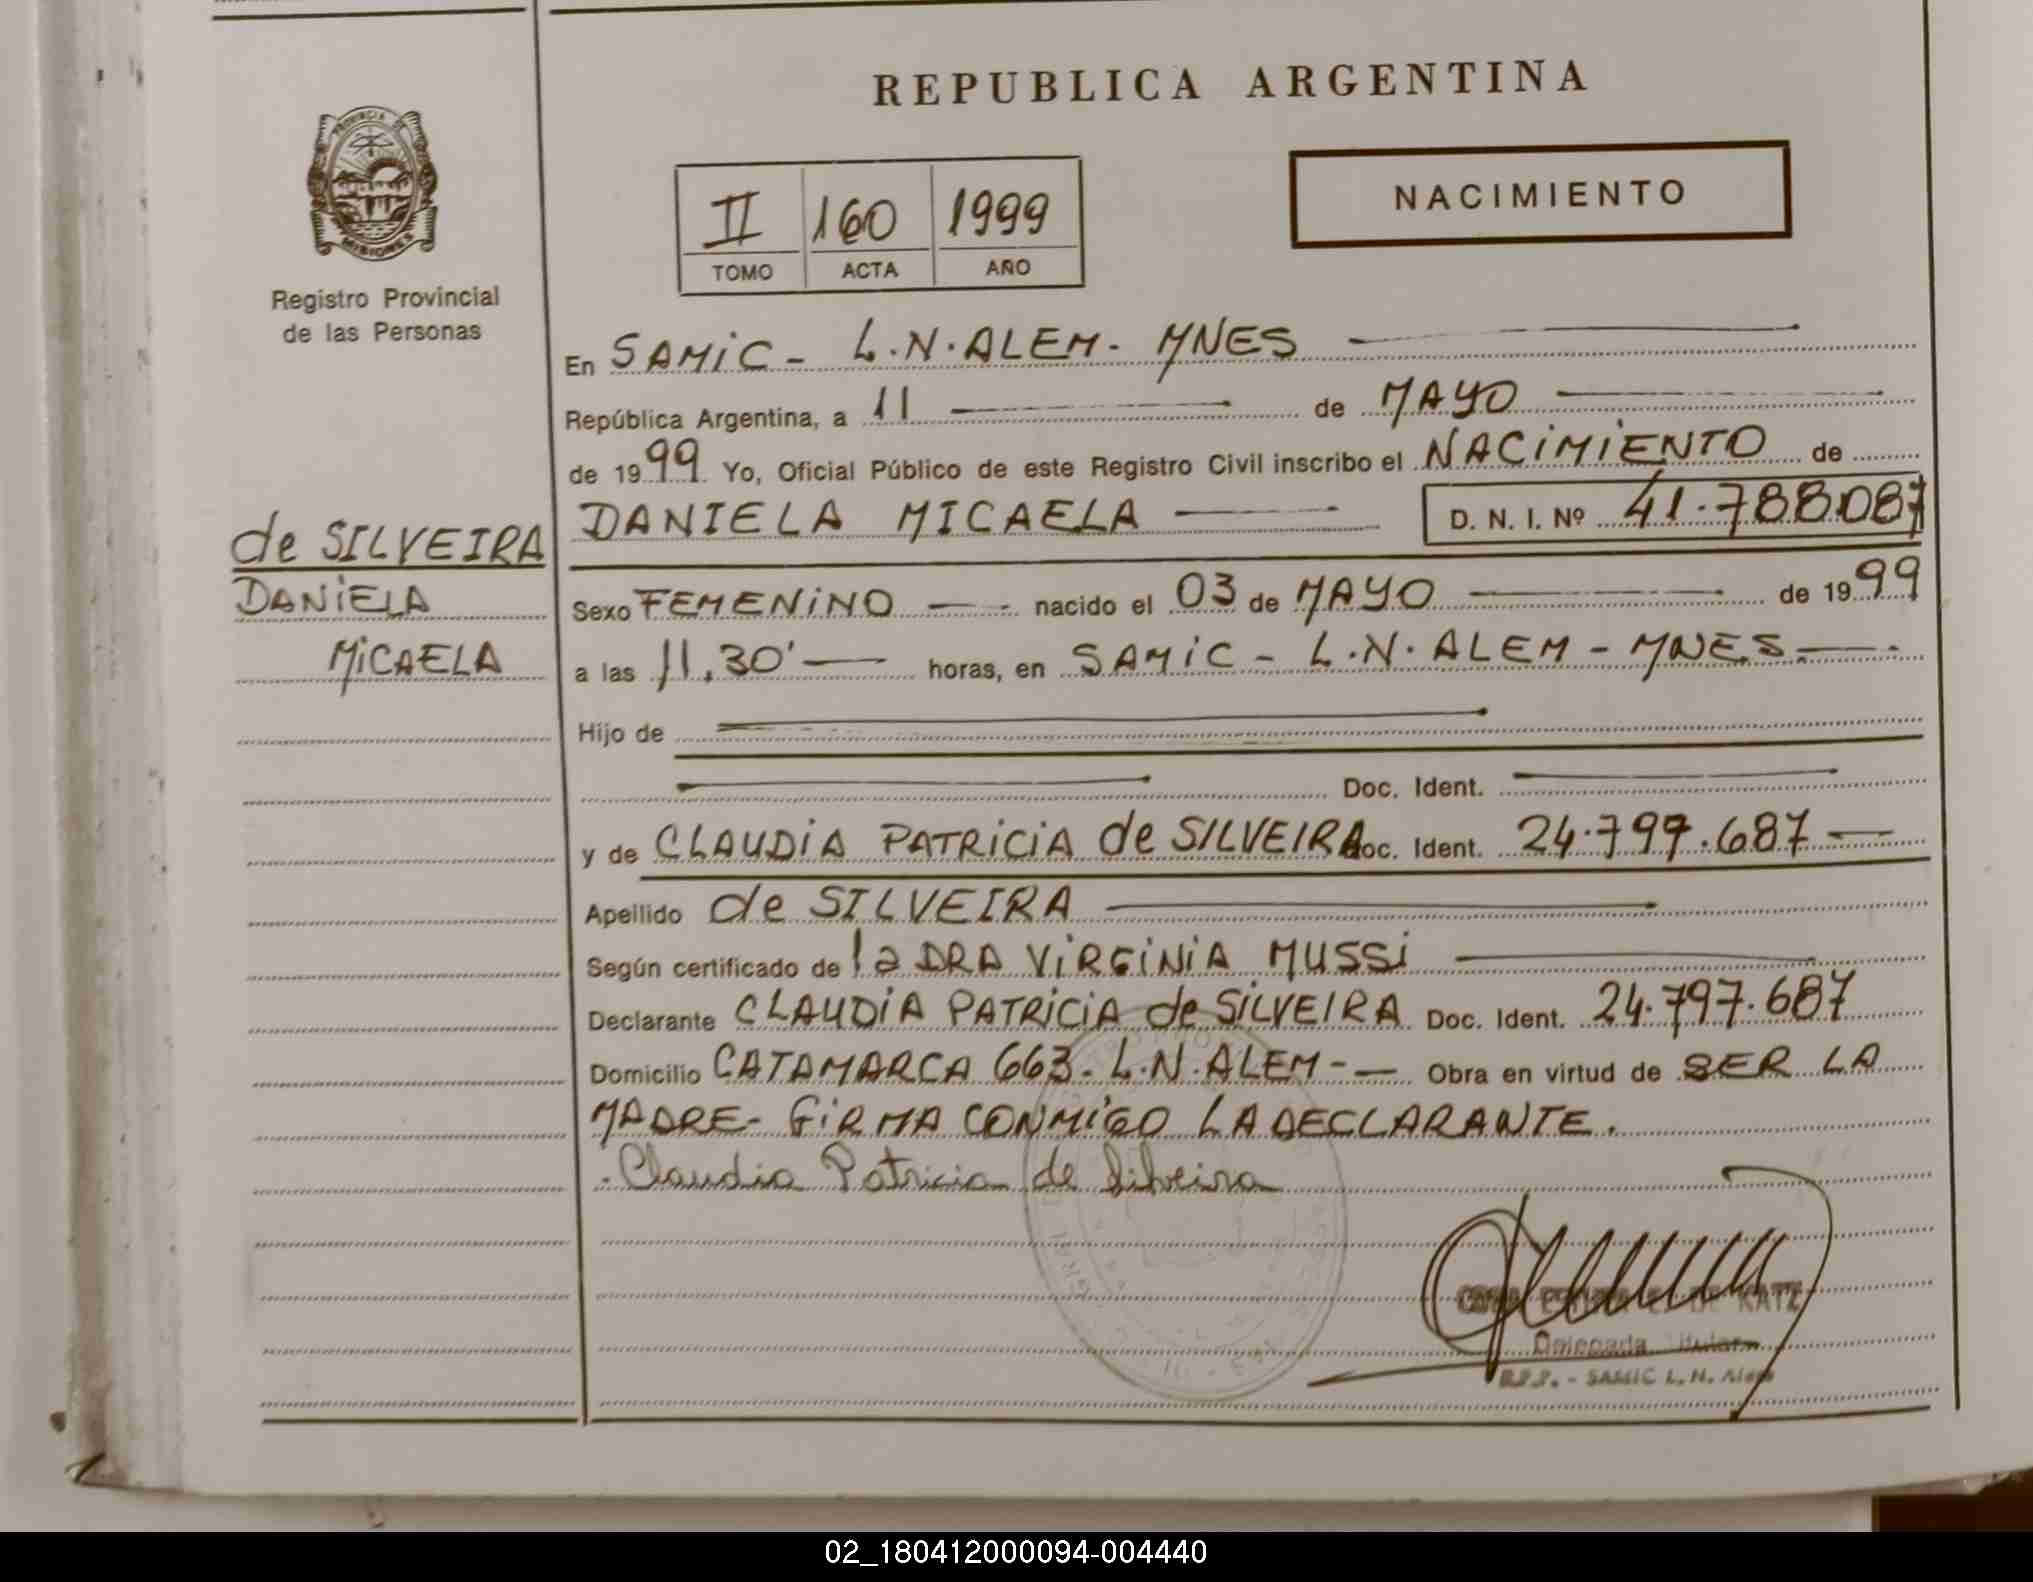 REPUBLICA ARGENTINA
PROVINCIA DE
MISIONES
Registro Provincial
de las Personas
II 160 1999
TOMO ACTA AÑO
NACIMIENTO
En SAMIC - L.N. ALEM - MNES
República Argentina, a 11 de MAYO
de 1999 Yo, Oficial Público de este Registro Civil inscribo el NACIMIENTO de
de SILVEIRA
DANIELA
MICAELA
DANIELA MICAELA D. N. I. Nº 41.788.087
Sexo FEMENINO nacido el 03 de MAYO de 1999
a las 11,30' horas, en SAMIC - L.N. ALEM - MNES.
Hijo de
Doc. Ident.
y de CLAUDIA PATRICIA de SILVEIRA Doc. Ident. 24.797.687
Apellido de SILVEIRA
Según certificado de la DRA VIRGINIA MUSSI
Declarante CLAUDIA PATRICIA de SILVEIRA Doc. Ident. 24.797.687
Domicilio CATAMARCA 663. L.N. ALEM - Obra en virtud de SER LA
MADRE - FIRMA CONMIGO LA DECLARANTE.
Claudia Patricia de Silveira
DE KATZ
Delegada Titular
R.P.P. - SAMIC L. N. Alem
02_180412000094-004440